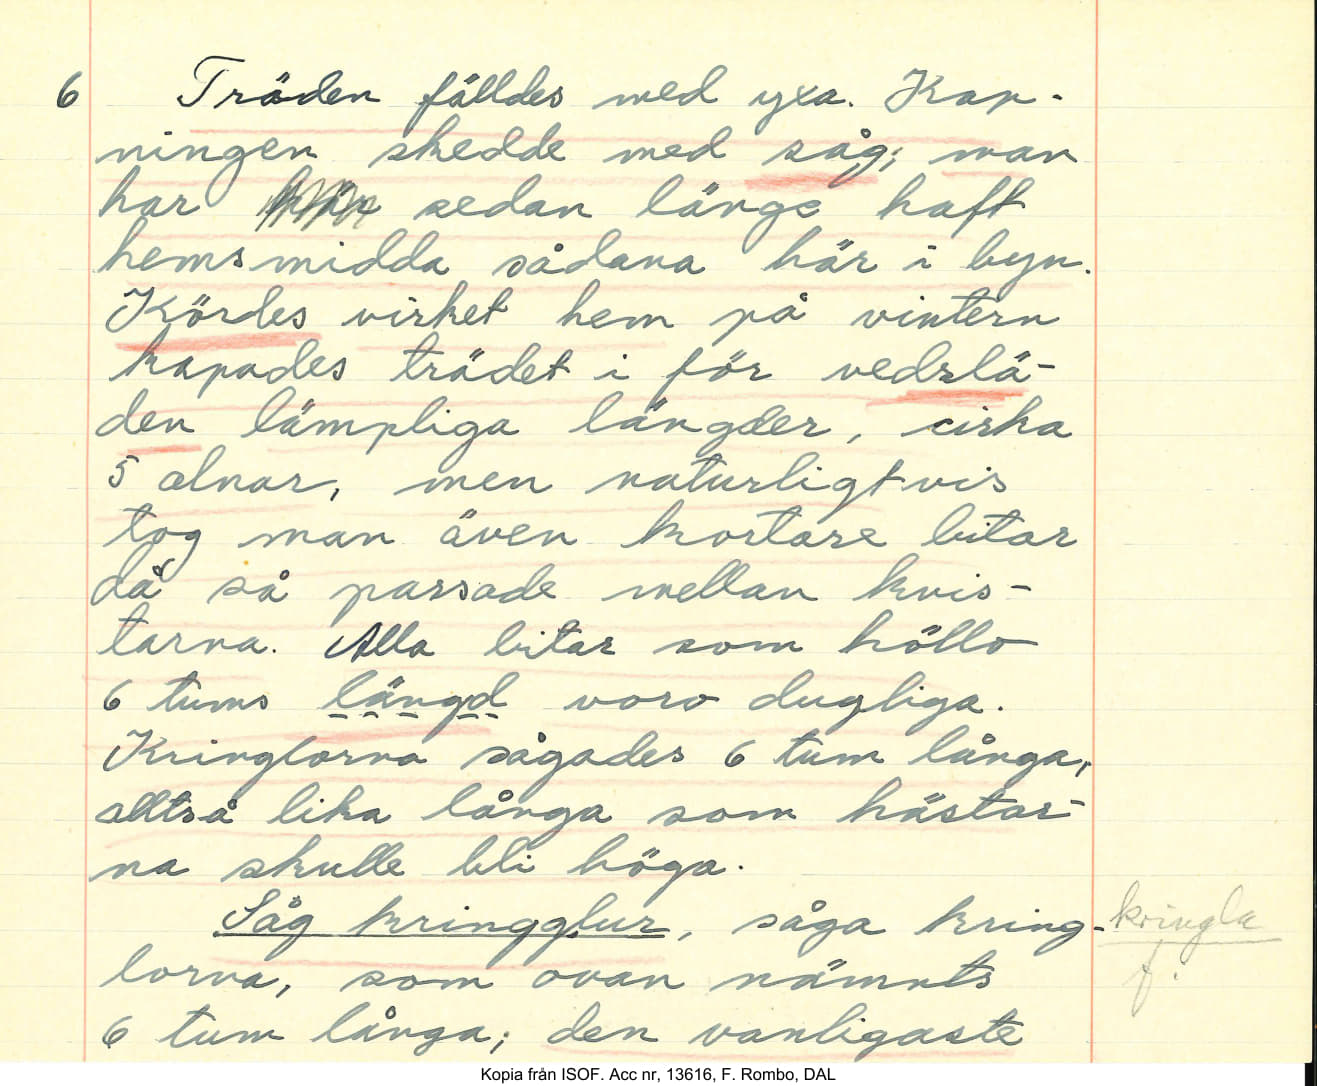 6 Träden fälldes med yxa. Kap-
ningen skedde med såg; man
har sedan länge haft
hemsmidda sådana här i byn.
Kördes virket hem på vintern
kapades trädet i för vedslä-
den lämpliga längder, cirka
5 alnar, men naturligtvis
tog man även kortare bitar
då så passade mellan kvis-
tarna. Alla bitar som höllo
6 tums längd voro dugliga.
Kringlorna sågades 6 tum långa,
alltså lika långa som hästar-
na skulle bli höga.
Såg kringglur, såga kring- kringla
lorna, som ovan nämnts f.
6 tum långa; den vanligaste
Kopia från ISOF. Acc nr, 13616, F. Rombo, DAL